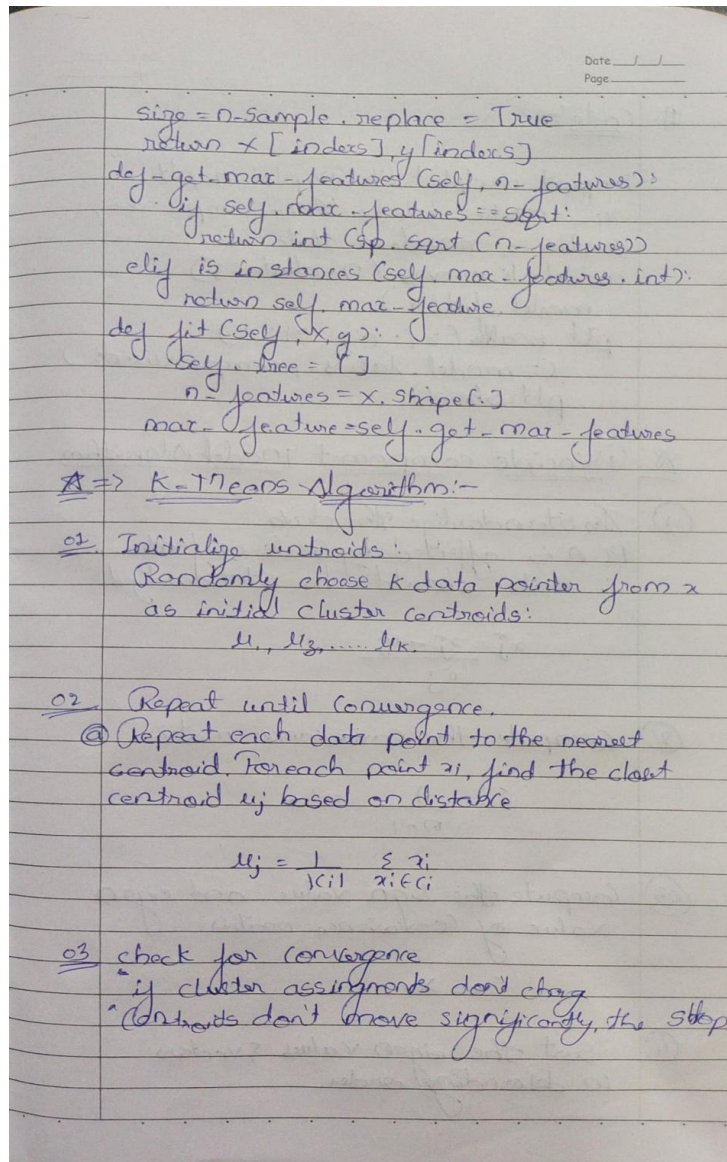 Date __/__/__
Page ______
size = n-sample. replace = True
return x [indexs], y [indexs]
def-get-max-features (self, n-features):
if self.max-features == sqrt:
return int (sp. sqrt (n-features))
elif is instances (self. max-features. int):
return self. max-feature
def fit (self, x, y):
self. tree = [ ]
n-features = x. shape[.]
max-feature = self. get-max-features
=> K-Means Algorithm:-
01. Initialize centroids:
Randomly choose k data pointer from x
as initial cluster centroids:
μ1, μ2, ..... μk.
02 Repeat until convergence.
ⓐ Repeat each data point to the nearest
centroid. For each point xi, find the closet
centroid μj based on distance
μj = 1/|Ci| Σ xi∈Ci xi
03 check for convergence
" if cluster assingments don't chang
" Centroids don't move significantly, the stop